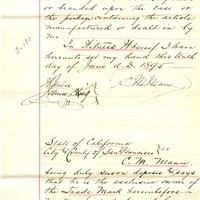 or branded upon the case or
the package containing the article
manufactured or dealt in by
me.
In Witness Whereof I have
hereunto set my hand this
day of June A.D. 1895
C. M. Mann
State of California
City & County of San Francisco } ss
C. M. Mann
being duly sworn deposes & says
that he is the exclusive owner of
the Trade Mark hereinbefore